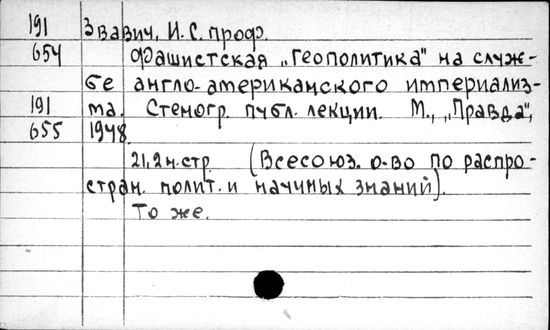 191 Звавич, И.С. проф.
654 Фашистская „Геополитика" на служ-
бе англо-американского империализ-
191 ма. Стеногр. публ. лекции. М., „Правда",
655 1948.
21,2 н. стр. (Всесоюз. о-во по распро-
стран. полит. и научных знаний).
То же.